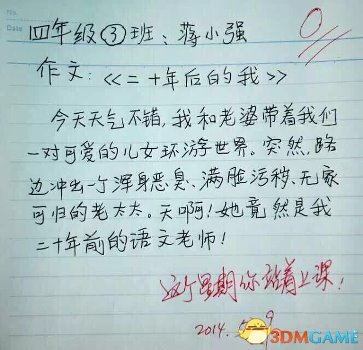 No.
Date
四年级③班：蒋小强
0
作文：《二十年后的我》
今天天气不错，我和老婆带着我们
一对可爱的儿女环游世界。突然，路
边冲出一个浑身恶臭、满脸污秽、无家
可归的老太太。天啊！她竟然是我
二十年前的语文老师！
这个星期你站着上课！
2014.5.9
3DMGAME